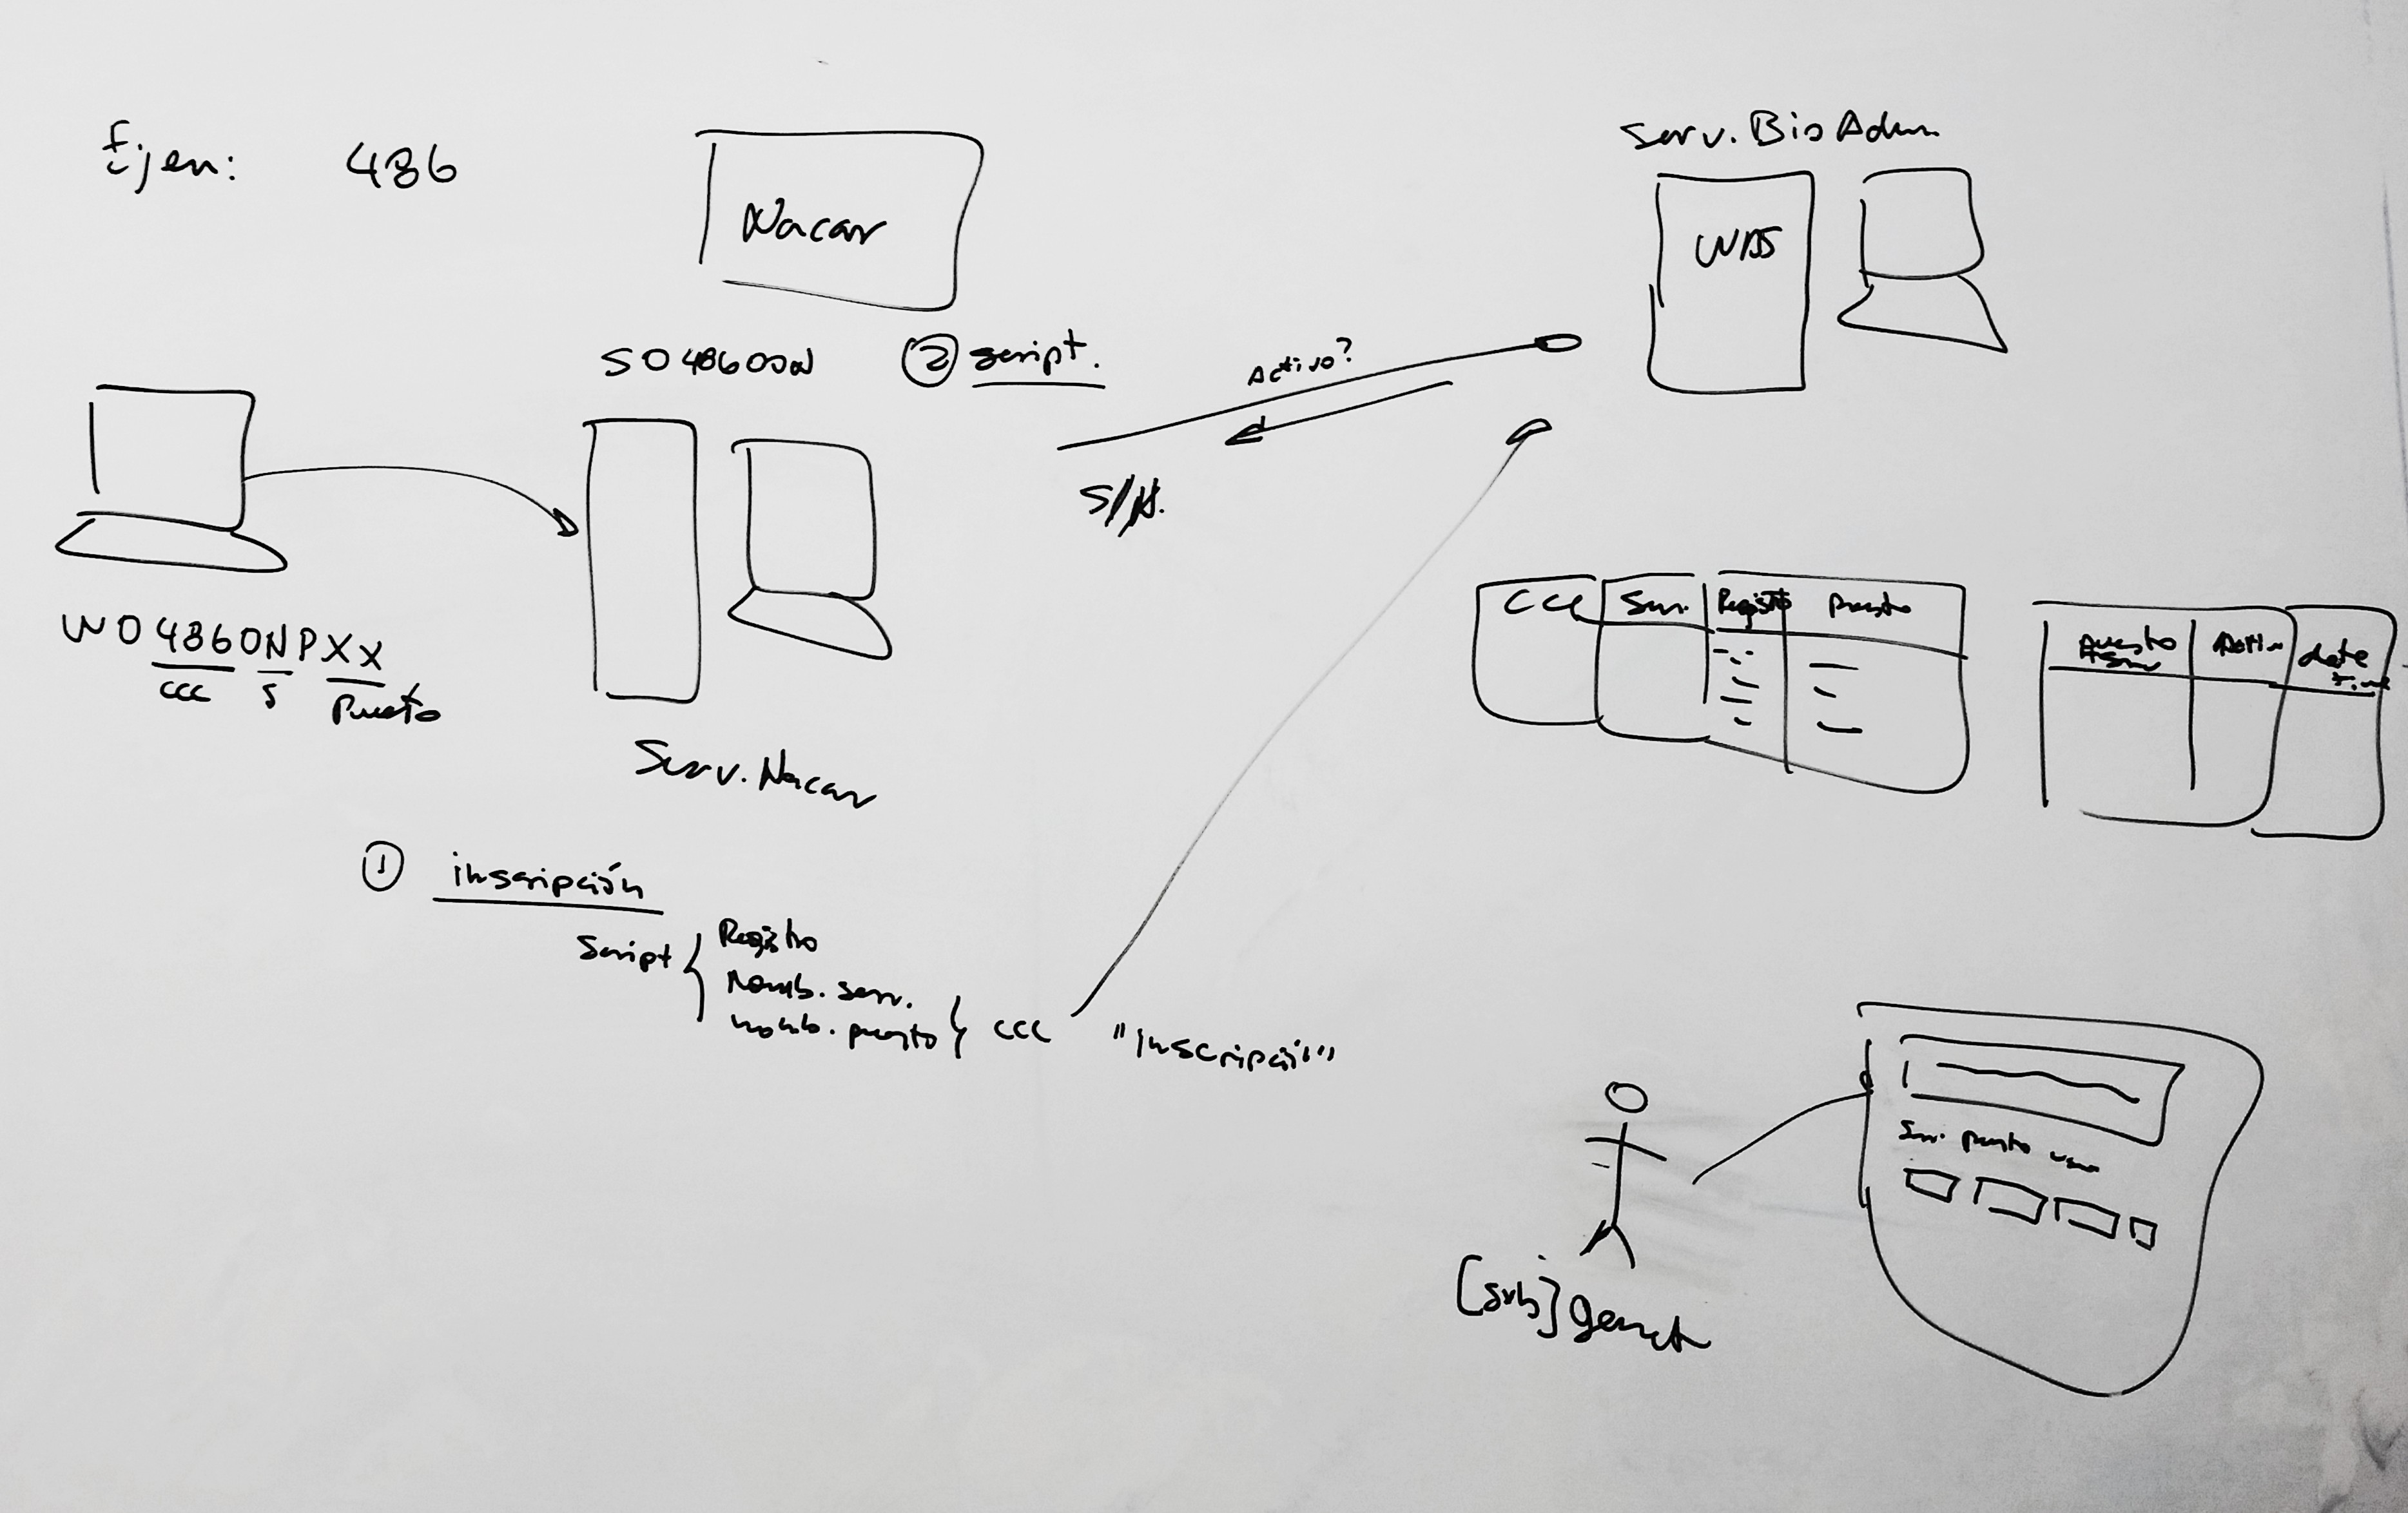 Ejem: 486
Nacar
Serv. Bio Adm
WAS
② script.
Activo?
S/N.
W04860NPXX
ccc S Puesto
Serv. Nacar
CCC Serv. Registro Puesto
Activo date time
① inscripción
Script { Registro
Nomb. serv.
nomb. puesto } CCC "inscripción"
Serv. puesto
[sub] gerente